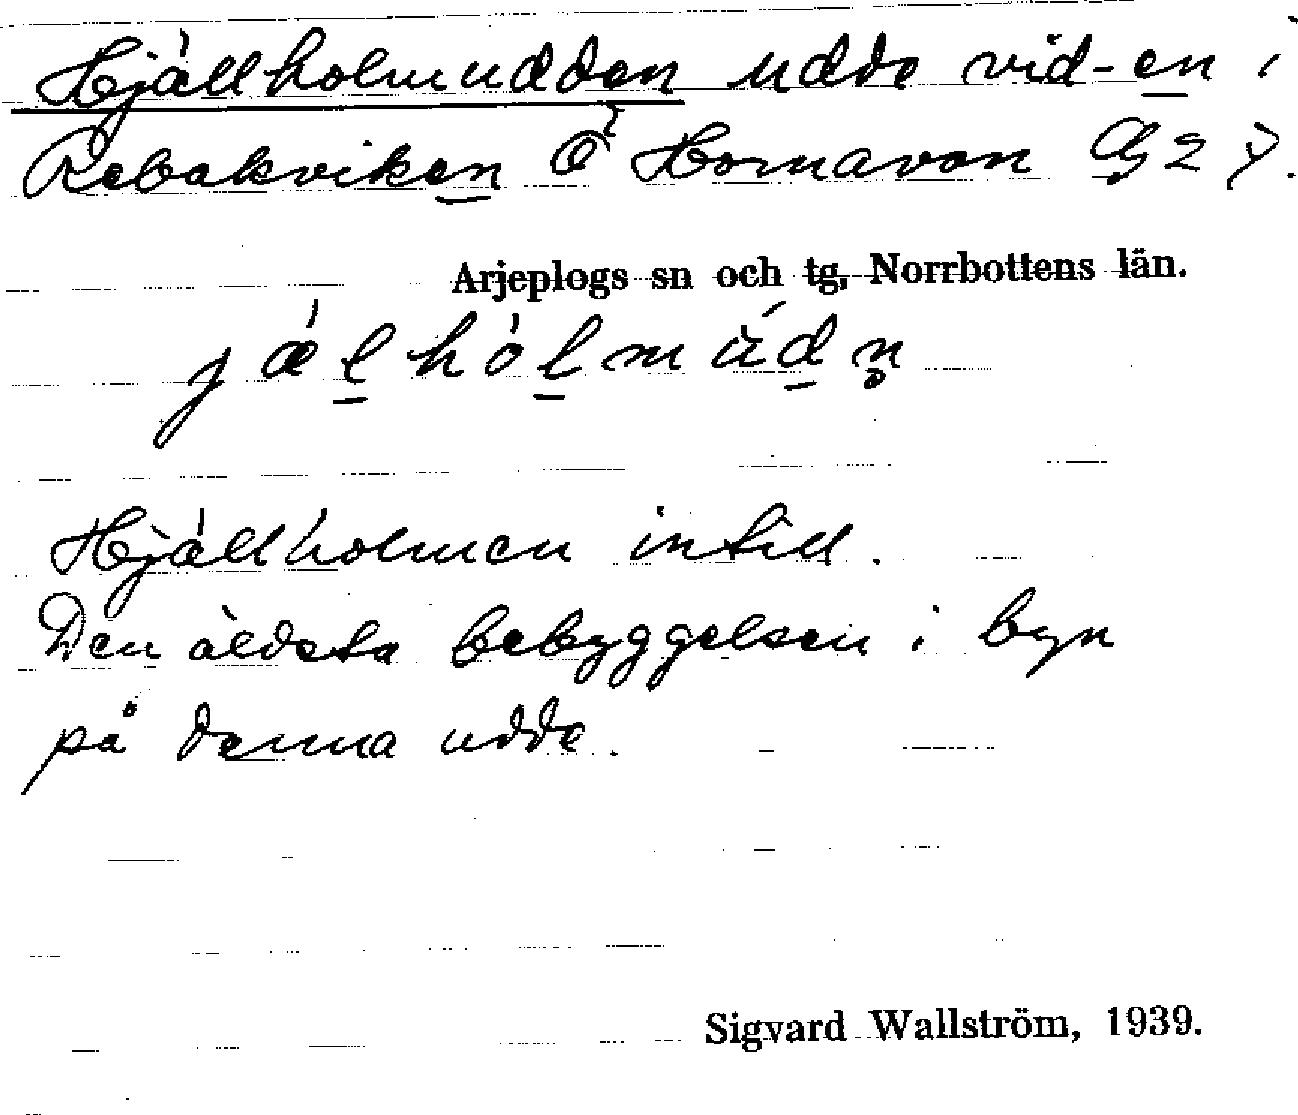 Hjällholmudden udde vid -en i
Rebakviken Ö Hornavan G 2 7.
Arjeplogs sn och tg, Norrbottens län.
jælhòlmùdn̥
Hjällholmen intill.
Den äldsta bebyggelsen i byn
på denna udde.
Sigvard Wallström, 1939.